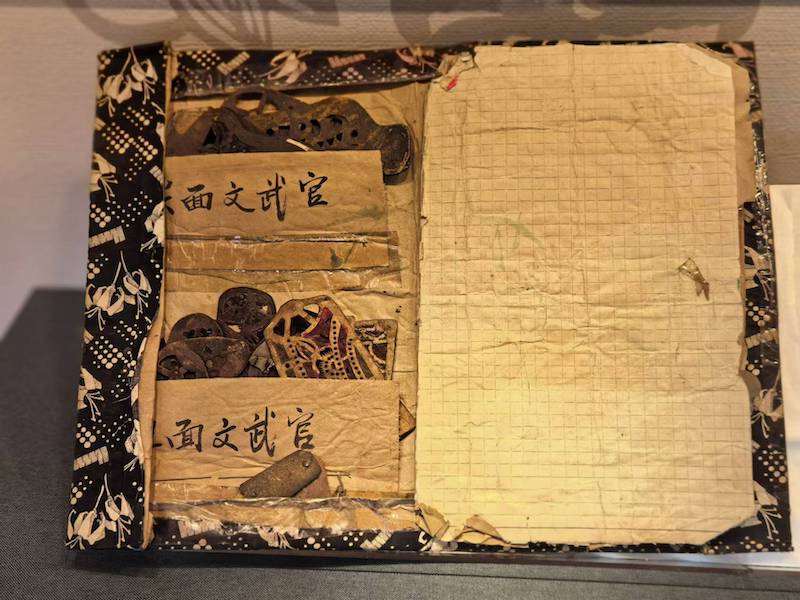 面文武官
面文武官